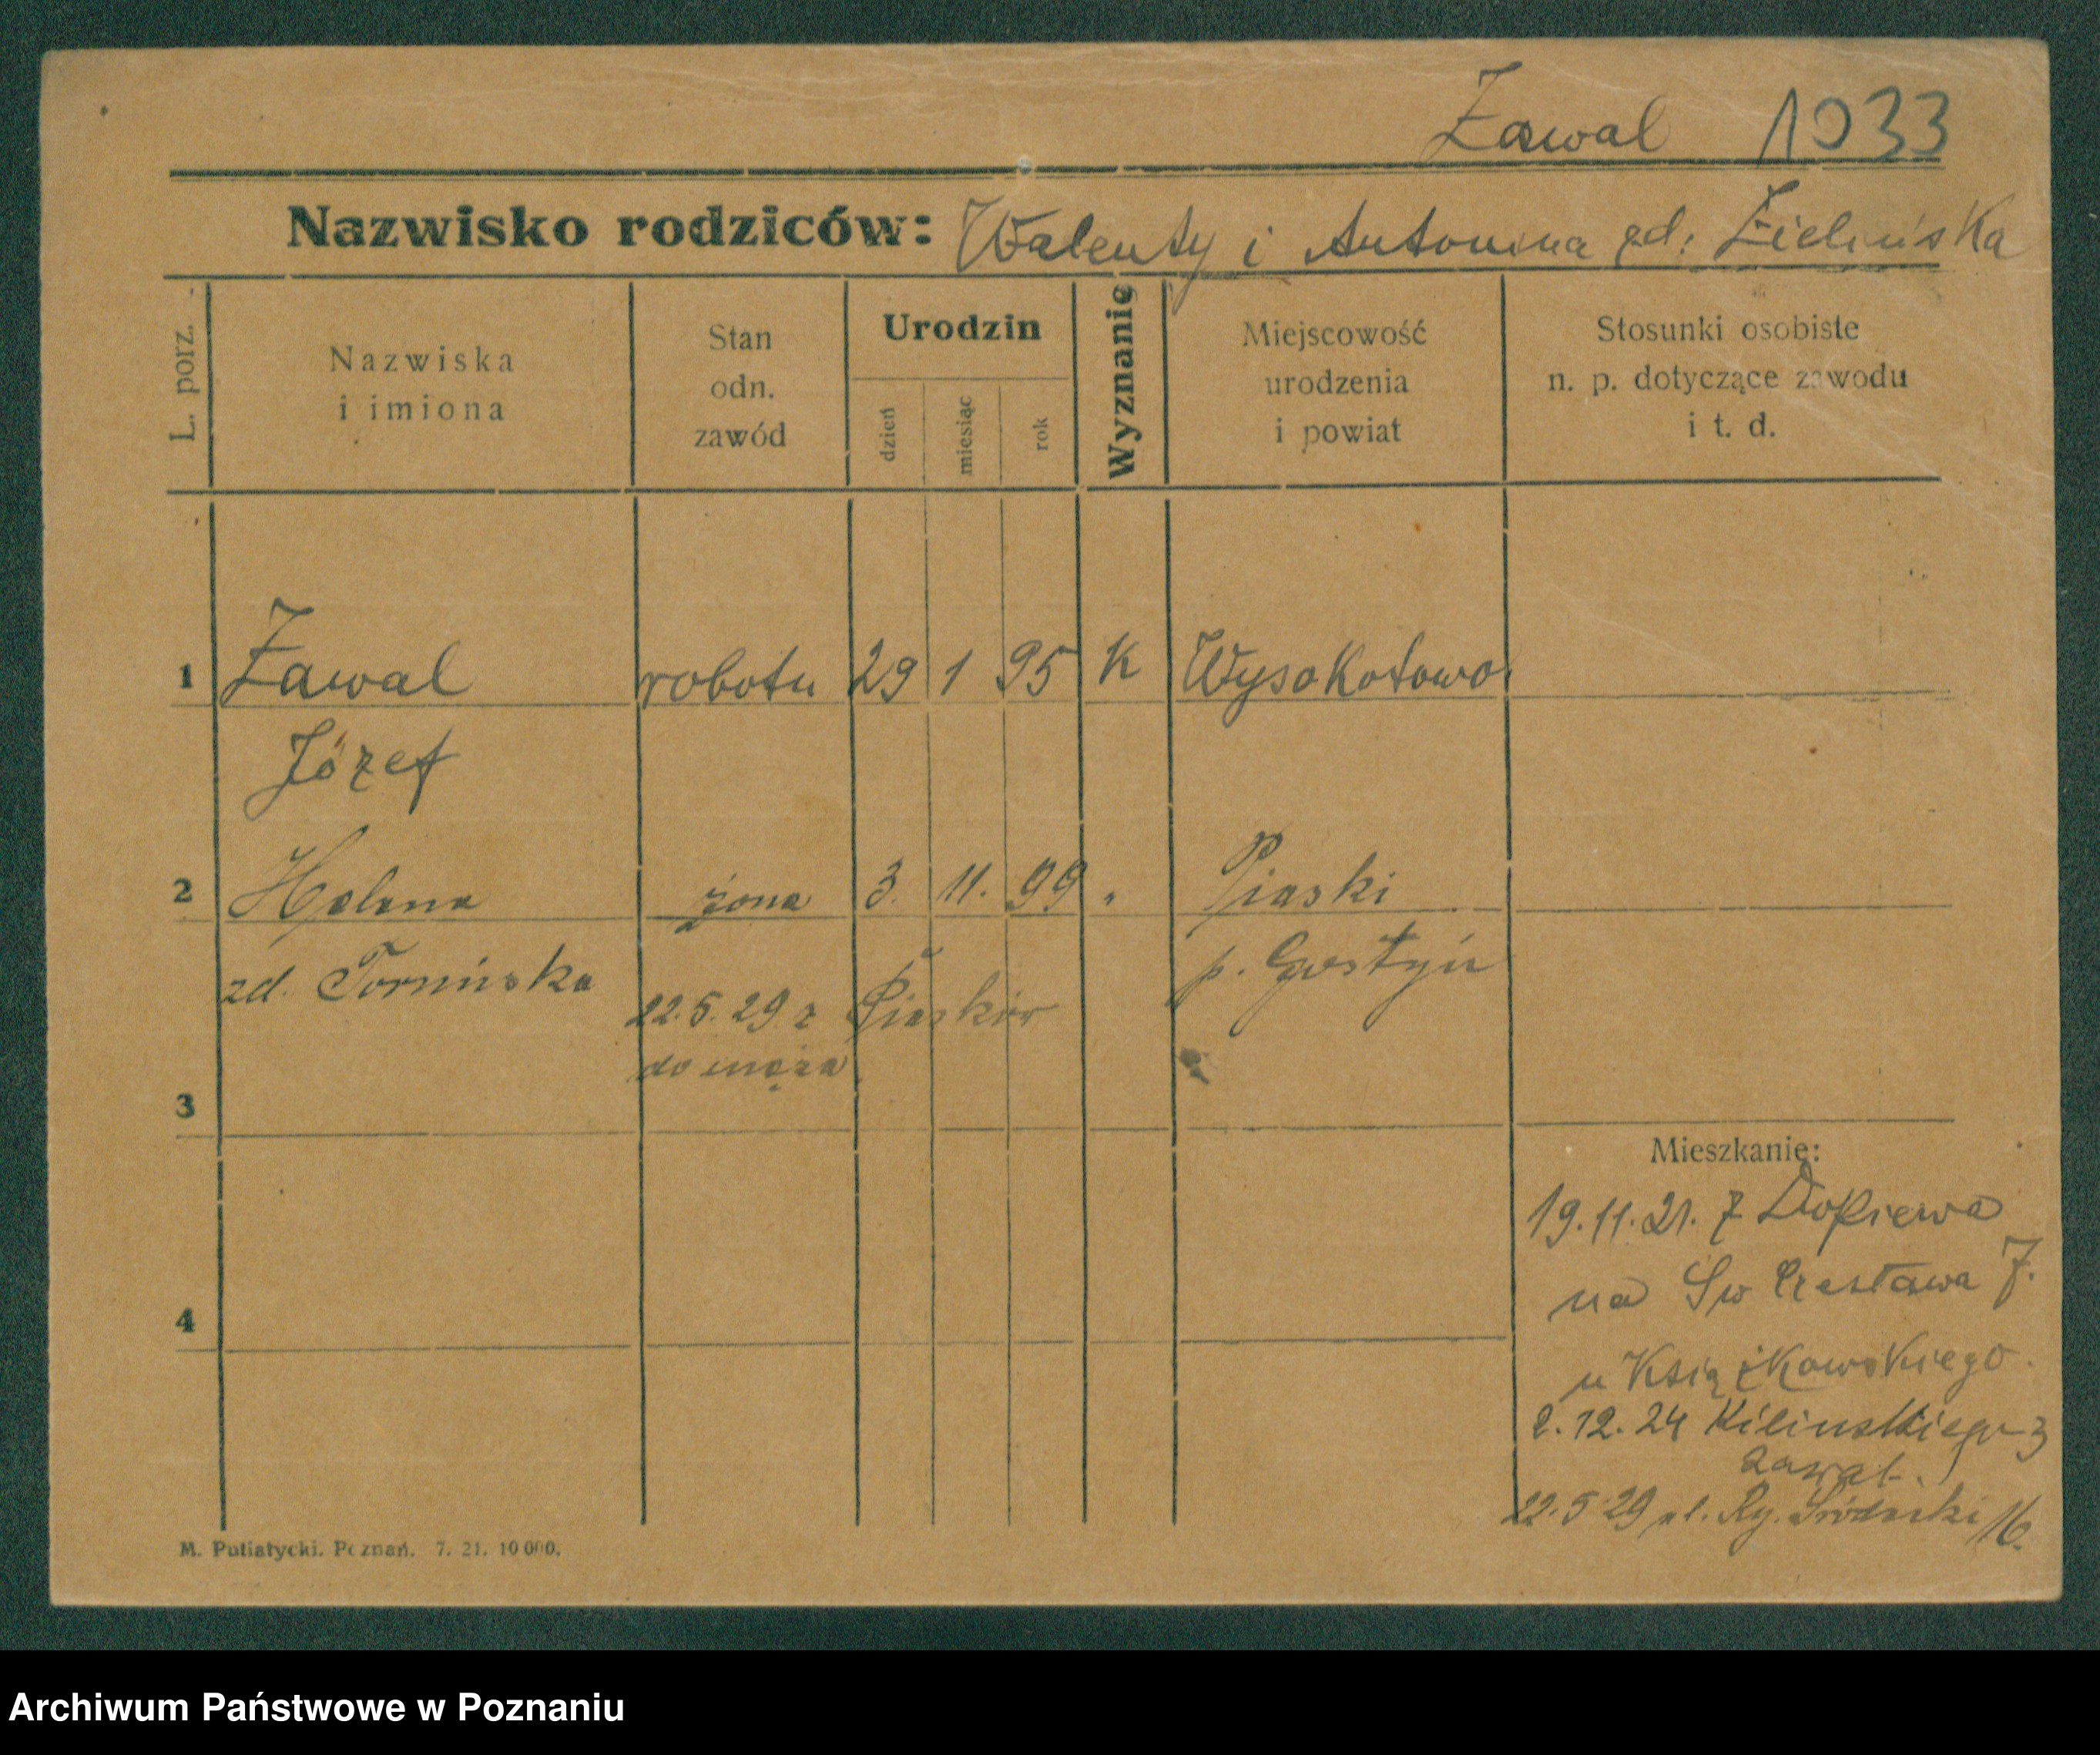 Zawal 1033
Nazwisko rodziców: Walenty i Antonina zd: Zielińska
L. porz.
Nazwiska
i imiona
Stan
odn.
zawód
Urodzin
dzień
miesiąc
rok
Wyznanie
Miejscowość
urodzenia
i powiat
Stosunki osobiste
n. p. dotyczące zawodu
i t. d.
1 Zawal robotn 29 1 95 K Wysokotowo
Józef
2 Helena żona 3. 11. 99 " Piaski
zd. Tormińska p. Gostyń
22.5.29 z Piasków
do męża
3
Mieszkanie:
19.11.21. z Dopiewa
na Św Czesława 7.
4
u Książkowskiego.
2.12.24 Kilinskiego 3
Zawal.
22.5 29 ul. Ry. Śródecki 16.
M. Putiatycki. Poznań. 7. 21. 10 000.
Archiwum Państwowe w Poznaniu